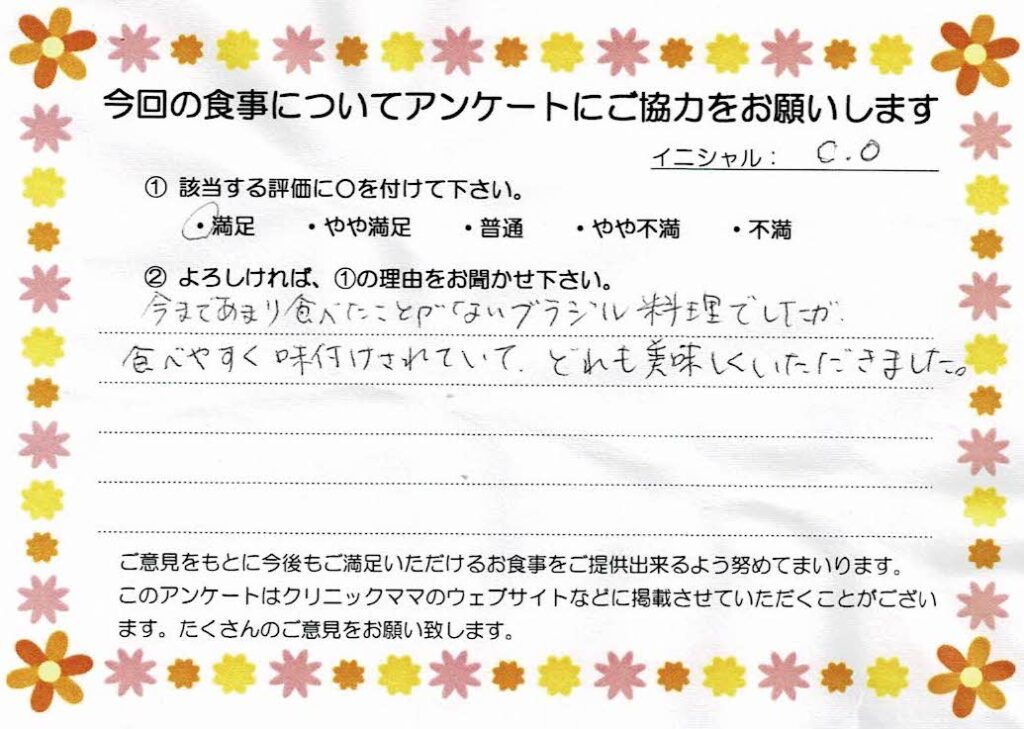 今回の食事についてアンケートにご協力をお願いします
イニシャル： C.O
① 該当する評価に○を付けて下さい。
・満足 ・やや満足 ・普通 ・やや不満 ・不満
② よろしければ、①の理由をお聞かせ下さい。
今まであまり食べたことがないブラジル料理でしたが、
食べやすく味付けされていて、どれも美味しくいただきました。
ご意見をもとに今後もご満足いただけるお食事をご提供出来るよう努めてまいります。
このアンケートはクリニックママのウェブサイトなどに掲載させていただくことがござい
ます。たくさんのご意見をお願い致します。